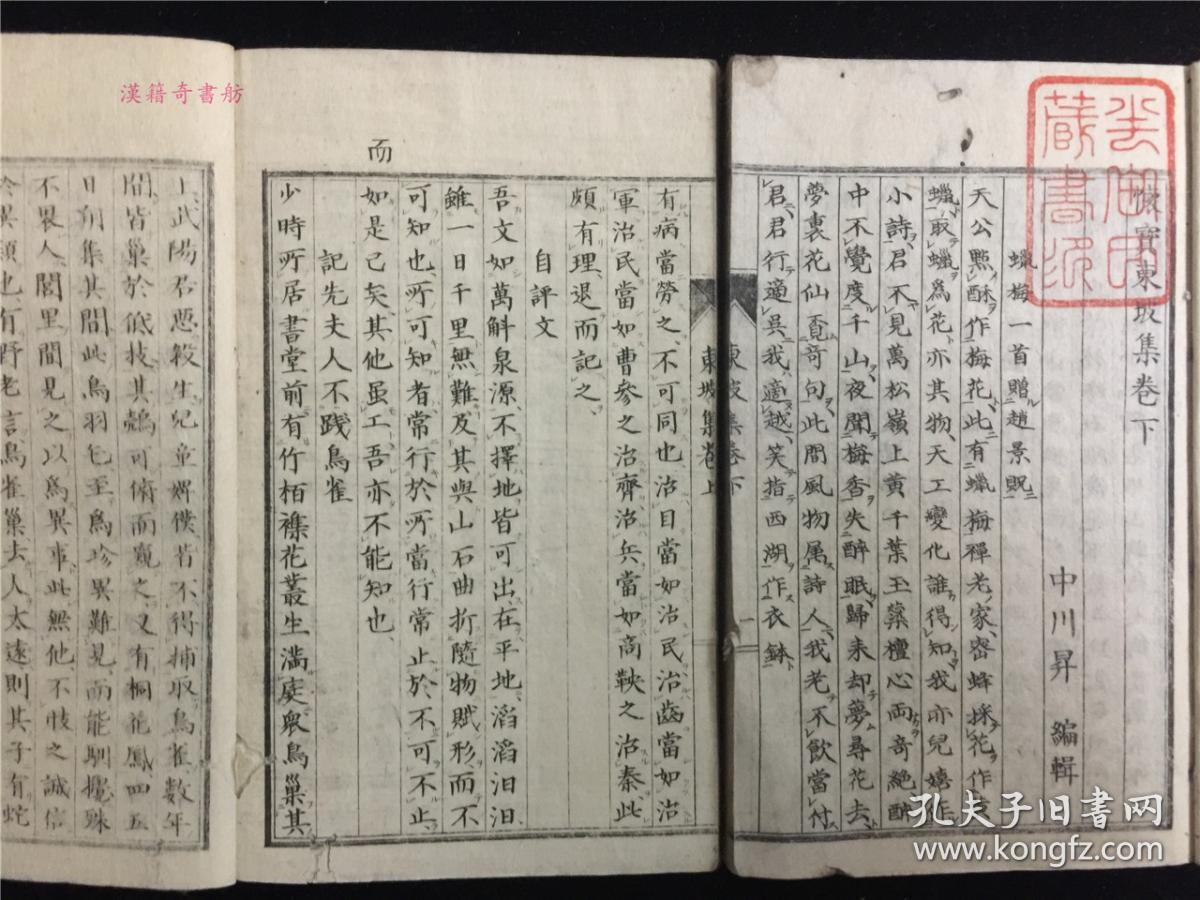 漢籍奇書舫
懷寶東坡集卷下
中川昇 編輯
蠟梅一首贈趙景貺
天公點酥作梅花此有蠟梅禪老家密蜂採花作
蠟取蠟爲花亦其物天工變化誰得知我亦兒嬉作
小詩君不見萬松嶺上黃千葉玉蘂檀心兩奇絕醉
中不覺度千山夜聞梅香失醉眠歸来却夢尋花去
夢裏花仙覓奇句此間風物属詩人我老不飲當付
君君行適吳我適越笑指西湖作衣鉢
東坡集卷下
一
東坡集卷上
有病當勞之不可同也治目當如治民治齒當如治
軍治民當如曹參之治齊治兵當如商鞅之治秦此
頗有理退而記之
自評文
吾文如萬斛泉源不擇地皆可出在平地滔滔汨汨
雖一日千里無難及其與山石曲折隨物賦形而不
可知也所可知者常行於所當行常止於不可不止
而
如是已矣其他虽工吾亦不能知也
記先夫人不践鳥雀
少時所居書堂前有竹栢襍花叢生滿庭衆鳥巢其
上武陽君惡殺生兒童婢僕皆不得捕取鳥雀數年
間皆巢於低枝其鷇可俯而窺之又有桐花鳳四五
日翔集其間此鳥羽毛至爲珍異難見而能馴擾殊
不畏人閭里間見之以爲異事此無他不忮之誠信
於異類也有野老言鳥雀巢去人太遠則其子有蛇
藏書
孔夫子旧书网
www.kongfz.com